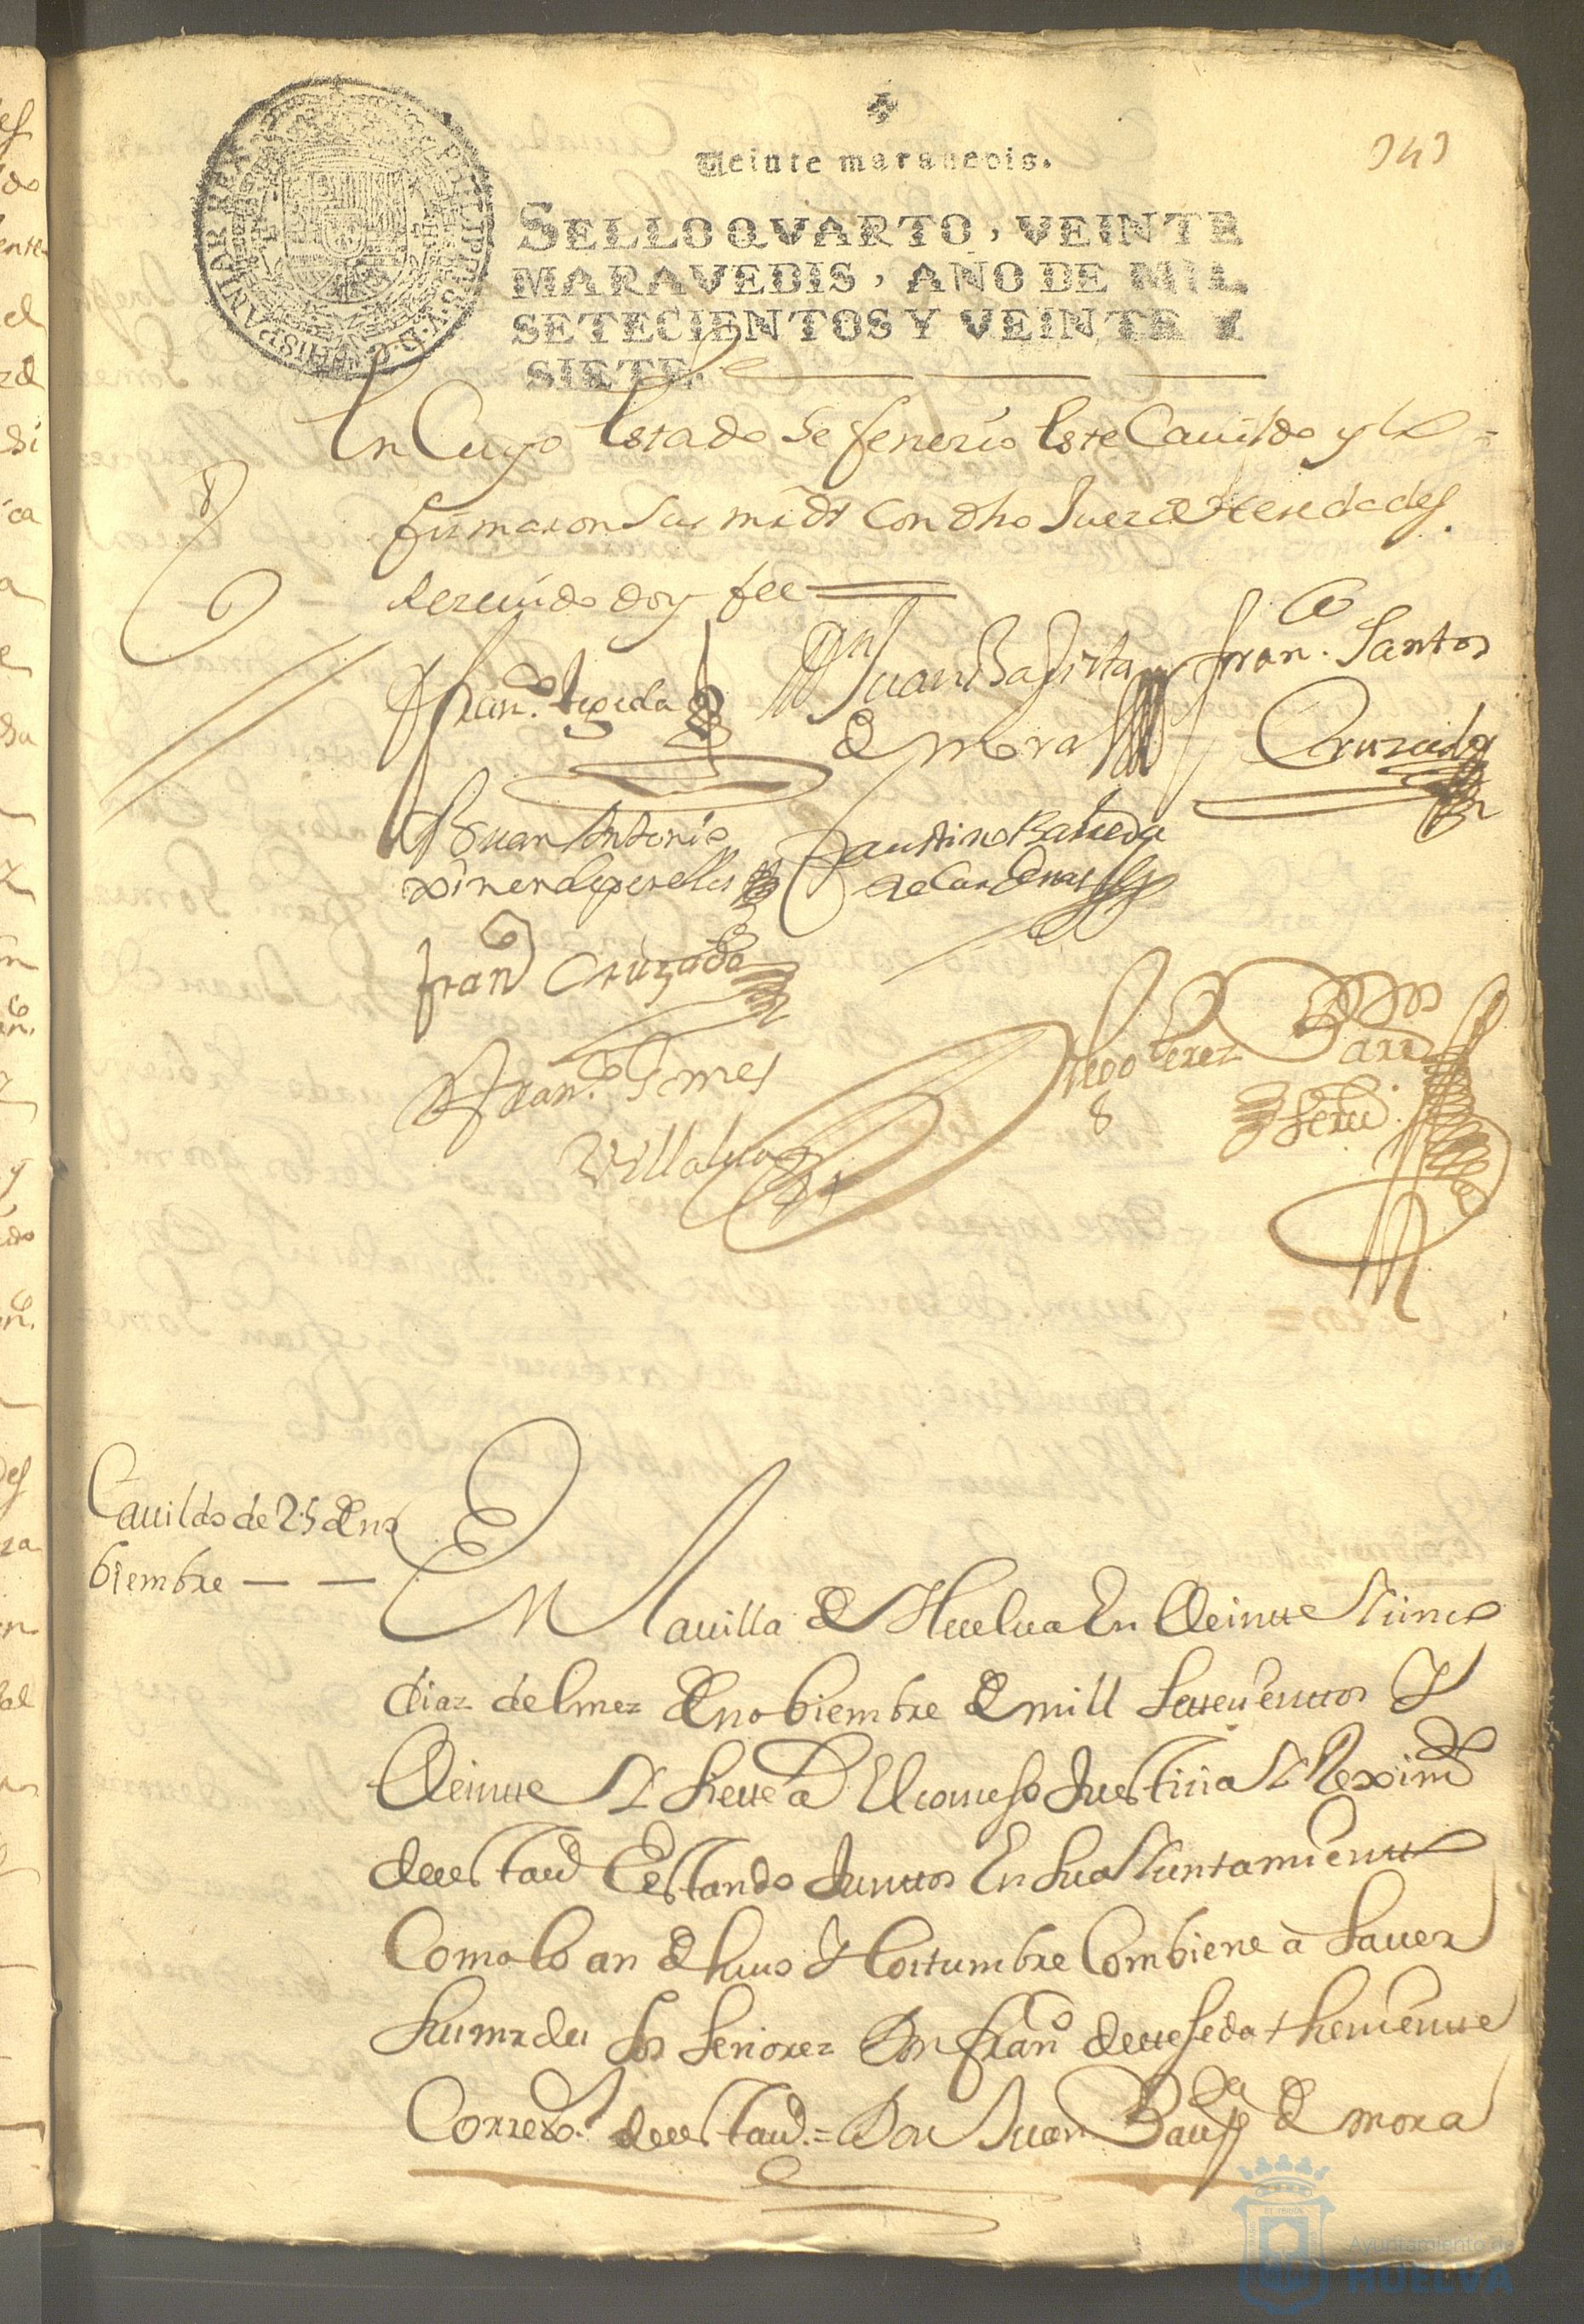 Veinte maravedis.
SELLO QVARTO, VEINTE
MARAVEDIS, AÑO DE MIL
SETECIENTOS Y VEINTE Y
SIETE.
PHILIPPUS V D G HISPANIAR REX
En Cuyo Estado Se fenezio Este Cauildo y lo
firmaron Sus mrds Con dho Juez de Heredades
Rezeuido doy fee
Fran.co teseda
Dn Juan Baptista
de Mora
fran.co Santos
Cruzado
Juan Antonio
ximenez
Faustino Barreda
de Cardenas
Fran.co Cruzado
Fran.co Gomes
Villalua
Diego Perez
Cauildo de 25 de no
biembre
En la uilla de Huelua En Veinte Y sinco
diaz del mez de nobiembre de mill Setecienttos Y
Veintte Y Siette a El consejo Justicia Y Reximto
de esta uа Estando Junttos En su aYuntamientto
Como lo an de huso Y Costumbre Combiene à Sauer
Su mrdes los Señorez Don franco de tteseda theniente
Correxor de esta ua = Don Juan Bauta de mora
Ayuntamiento de
HUELVA